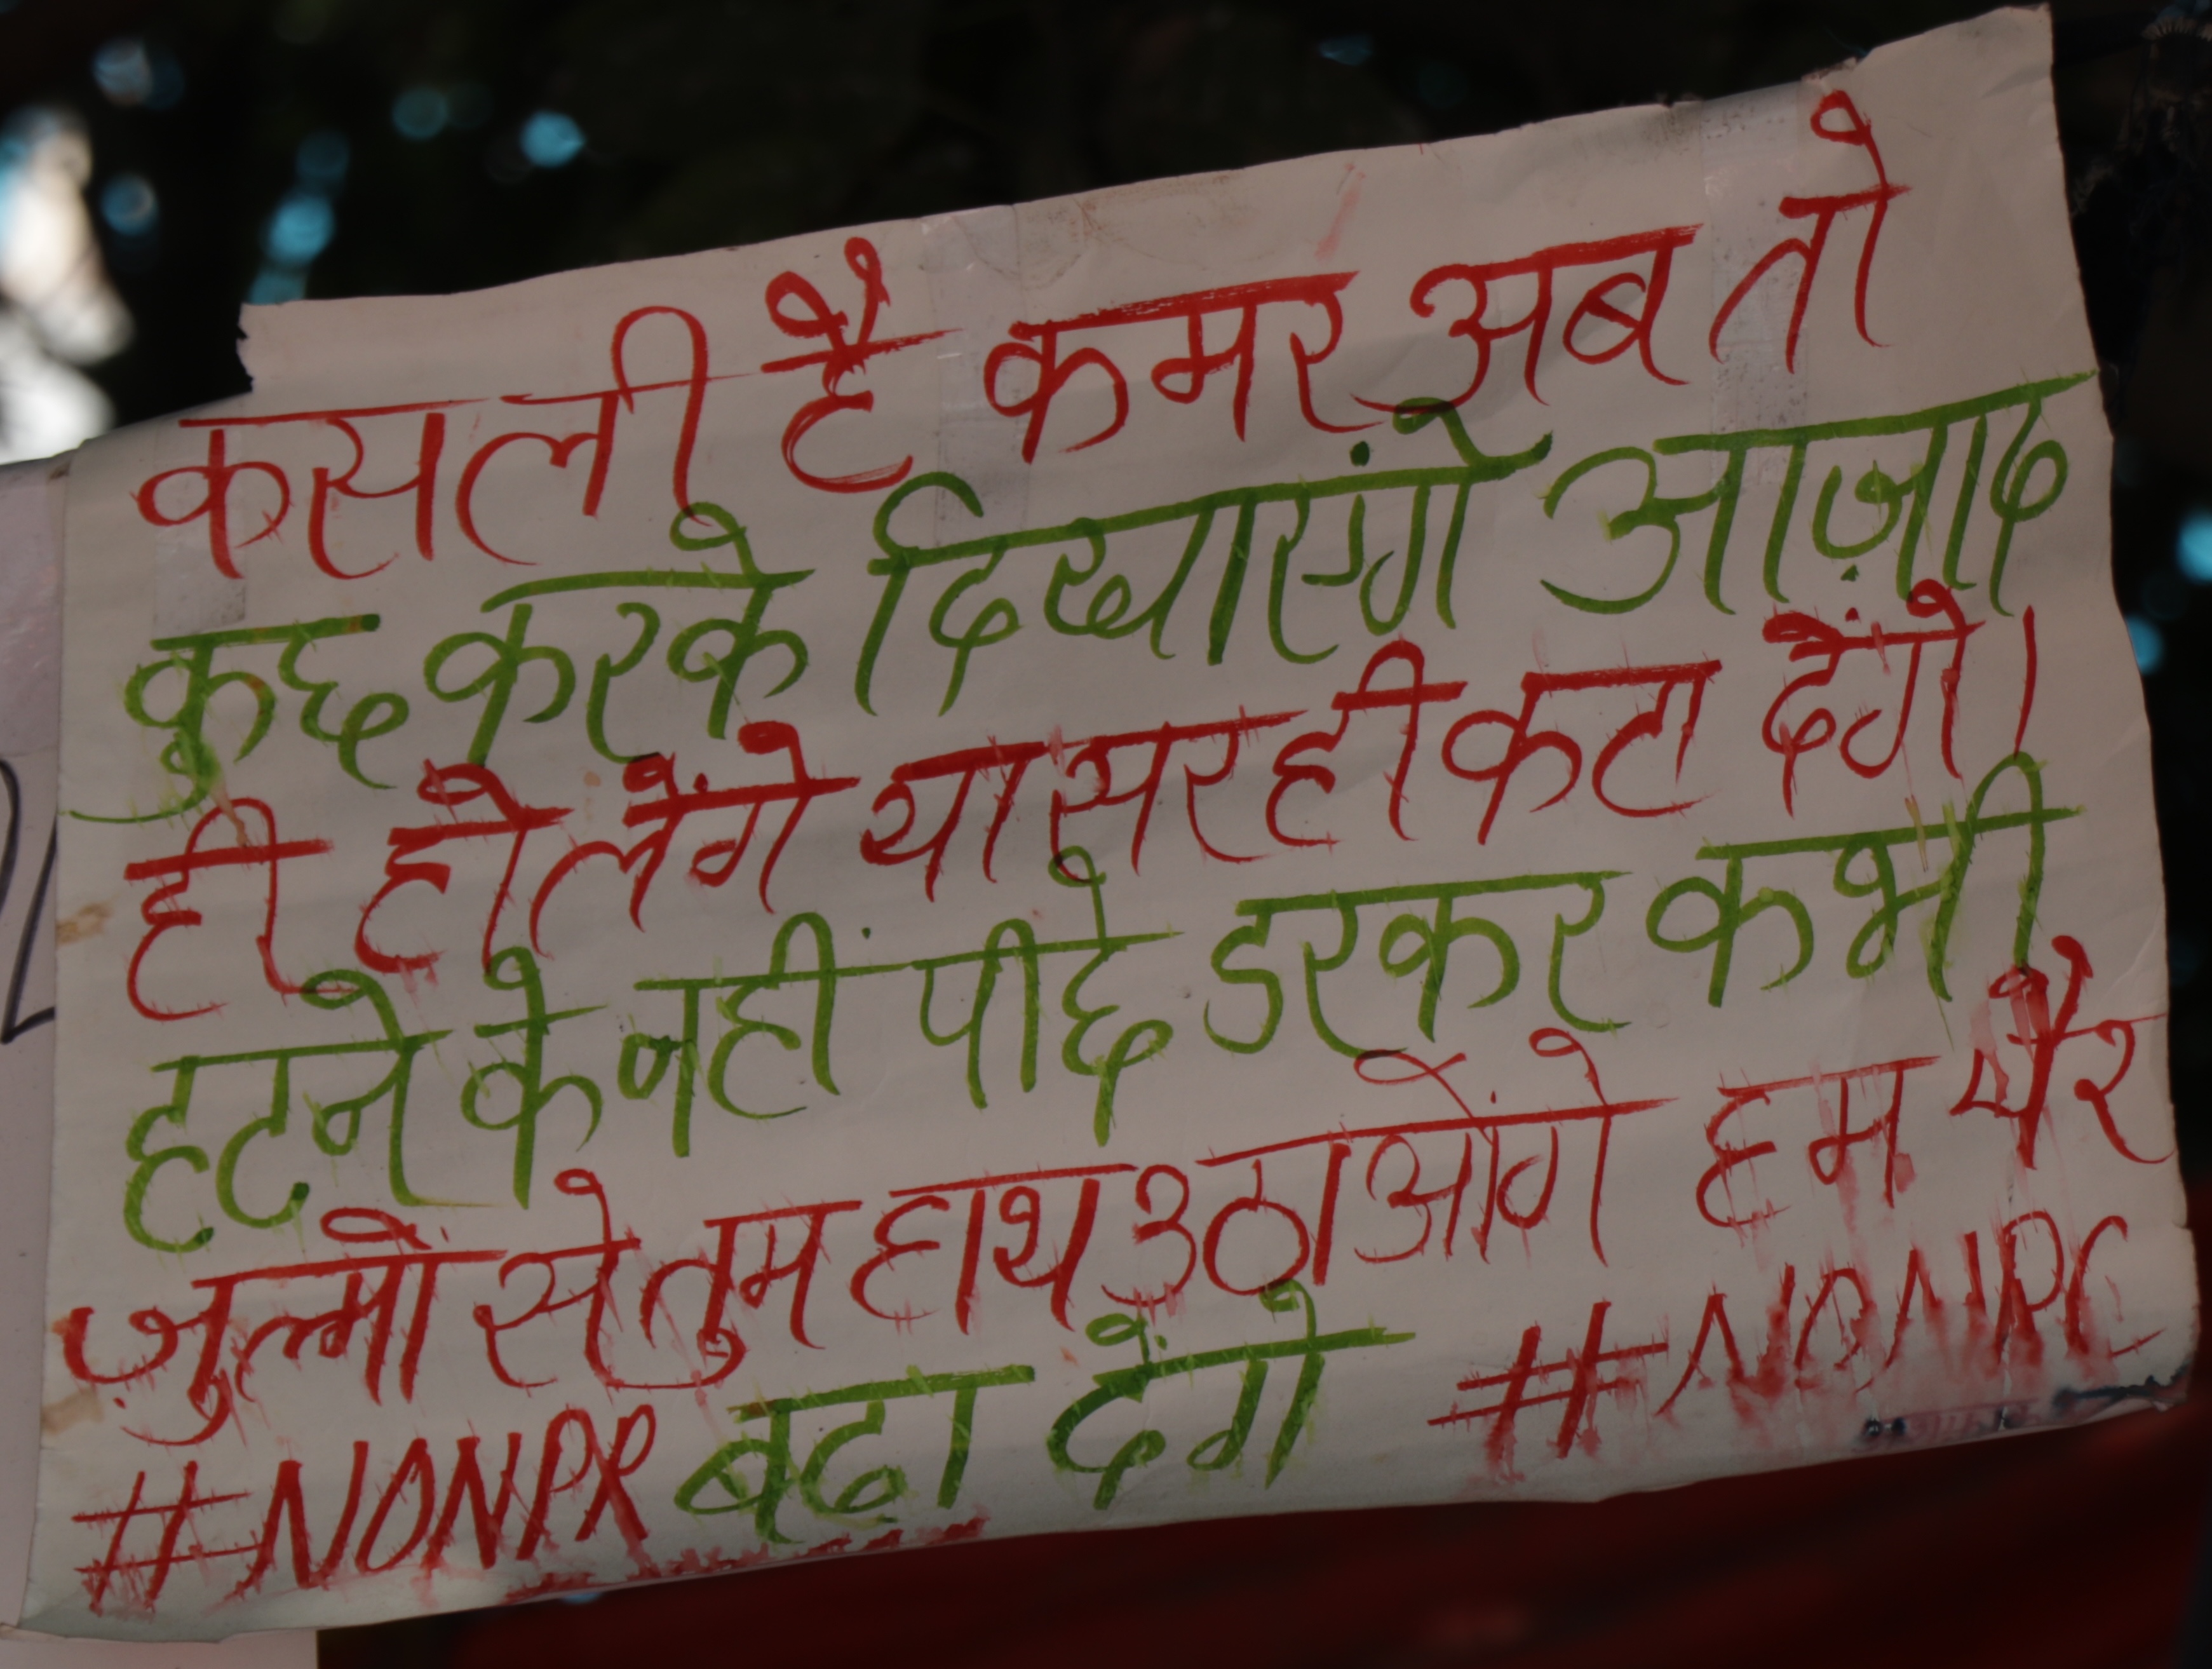 कसली है कमर अब तो
कुछ करके दिखाएंगे आज़ाद
ही होलेंगे या सर ही कटा देंगे।
हटने के नहीं पीछे डरकर कभी
ज़ुल्मों से तुम हाथ उठाओगे हम पैर
#NONPR बढा देंगे #NONRC